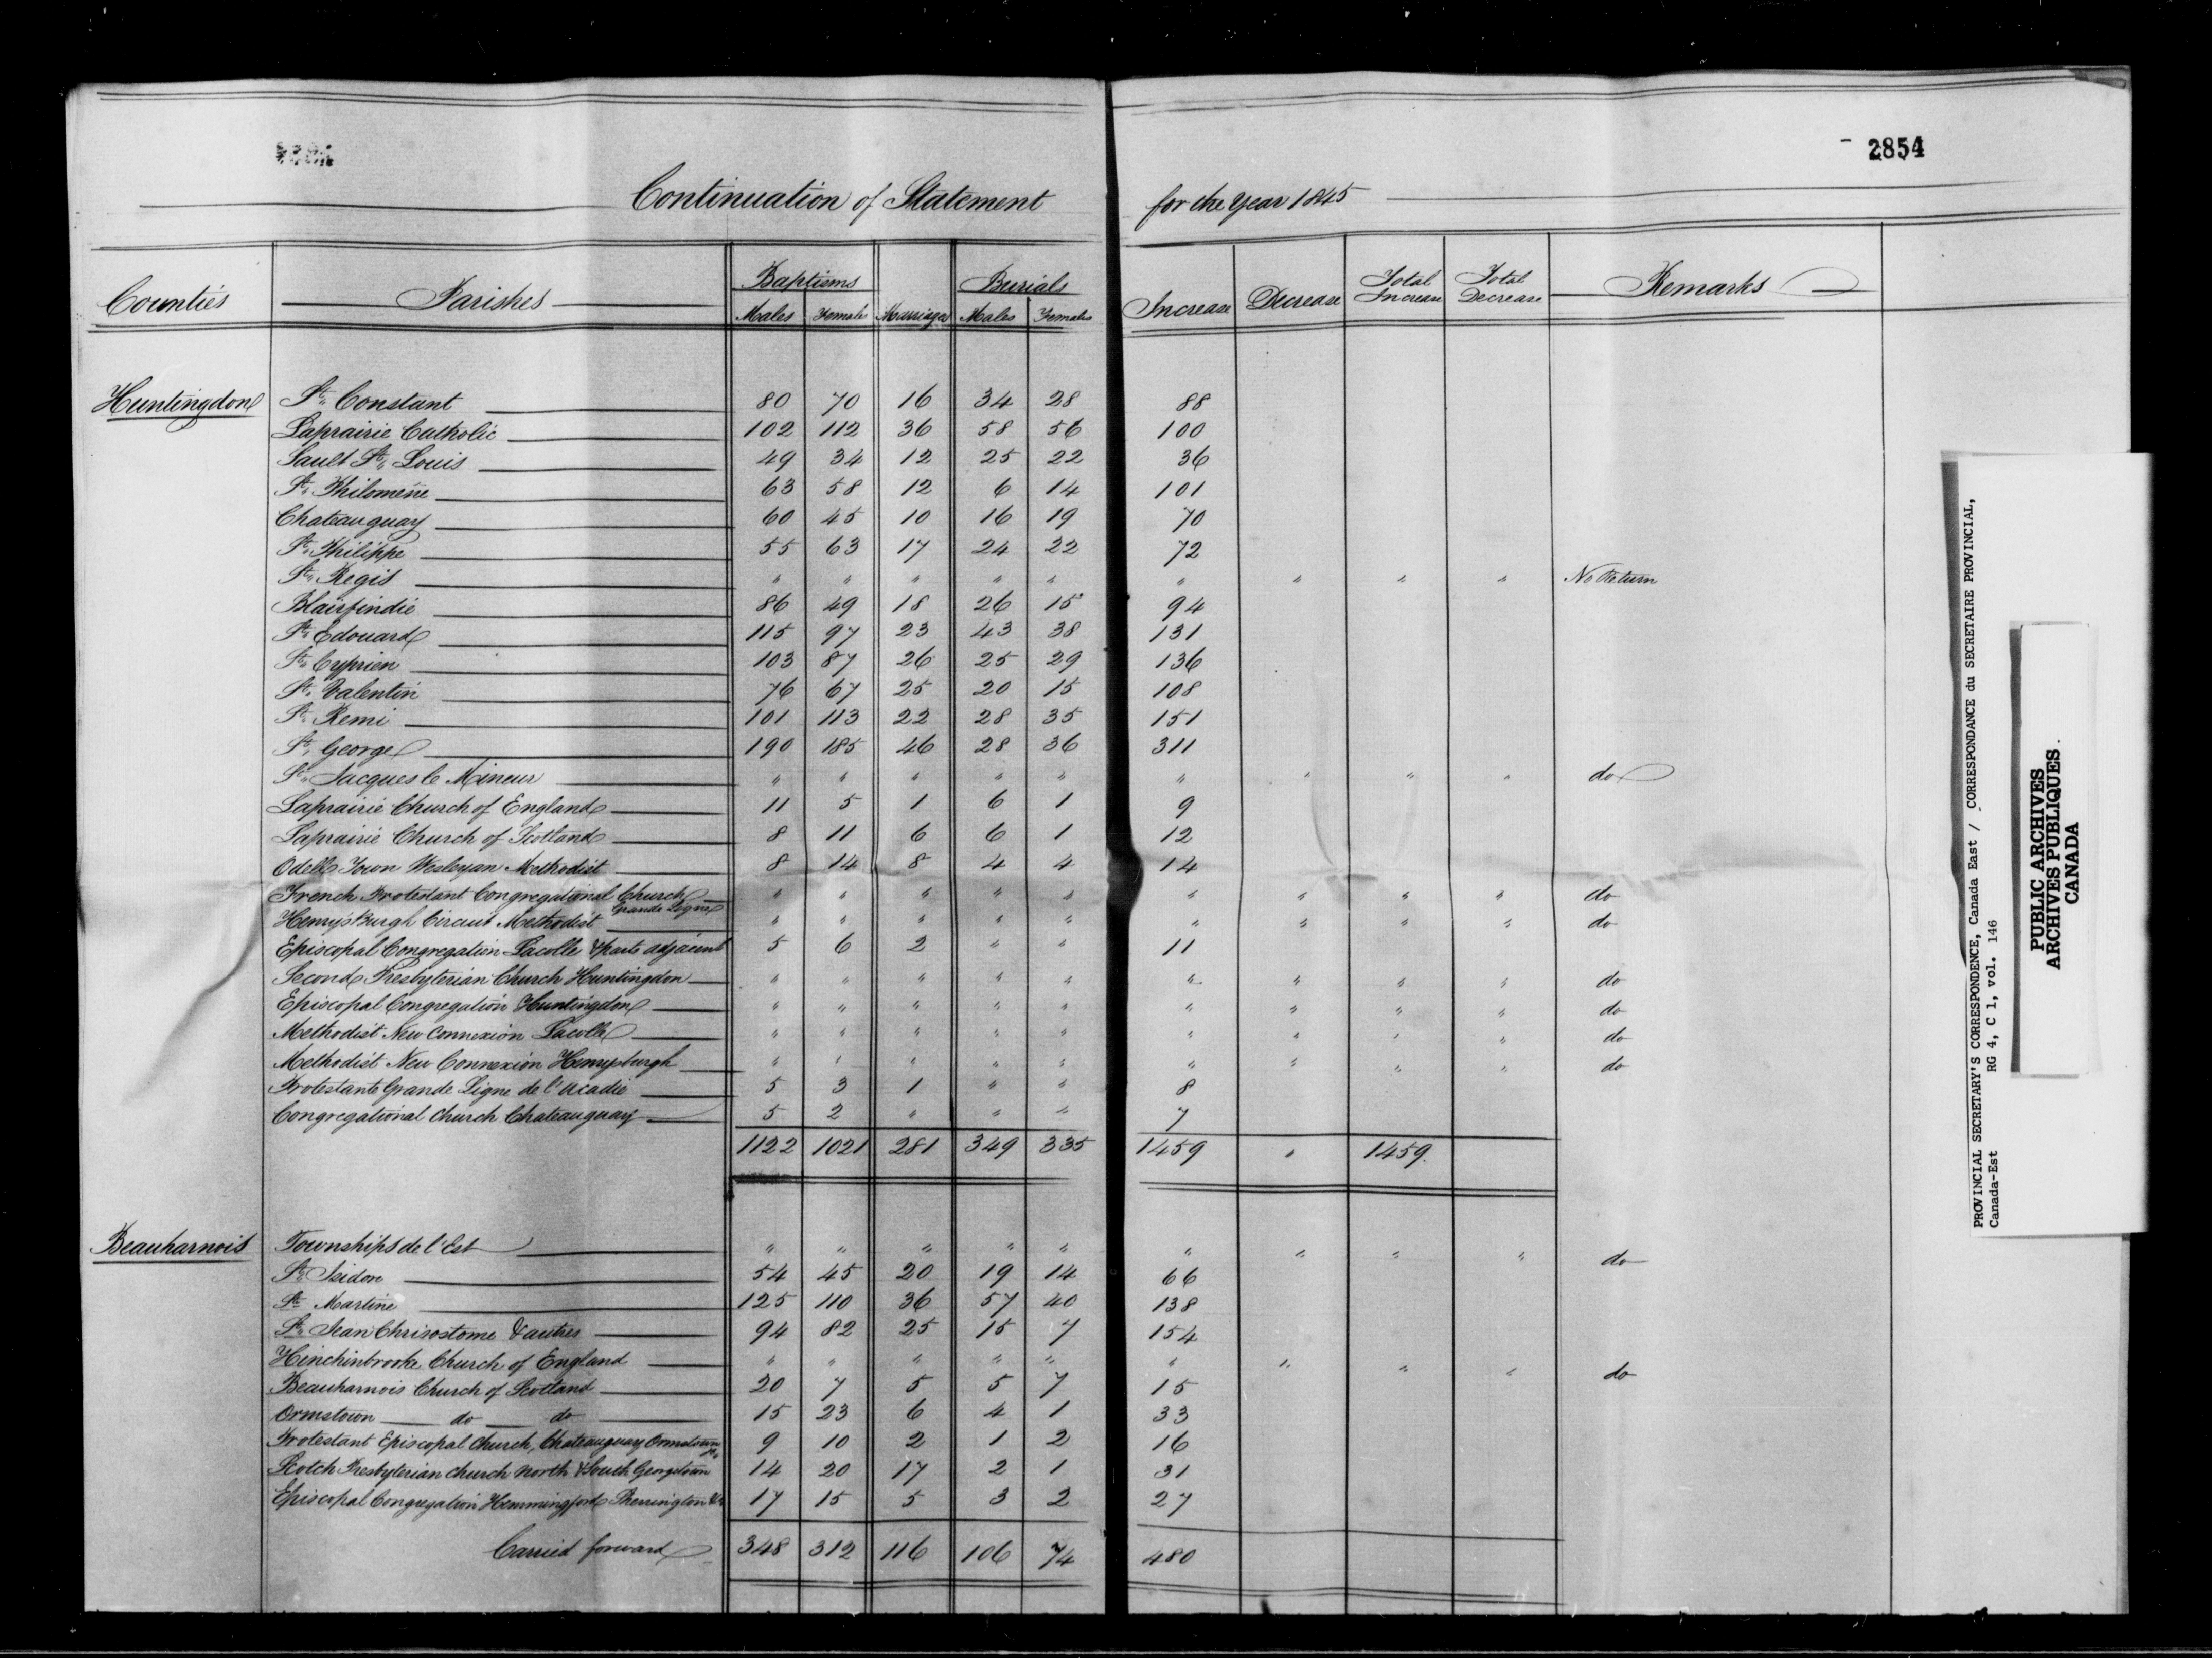 2854
Continuation of Statement for the Year 1845
Counties Parishes Baptisms Marriages Burials Increase Decrease Total Increase Total Decrease Remarks
Males Females Males Females
Huntingdon St. Constant 80 70 16 34 28 88
Laprairie Catholic 102 112 36 58 56 100
Sault St. Louis 49 34 12 25 22 36
St. Philomène 63 58 12 6 14 101
Chateauguay 60 45 10 16 19 70
St. Philippe 55 63 17 24 22 72
St. Regis " " " " " " " " " No Return
Blairfindie 86 49 18 26 15 94
St. Edouard 115 97 23 43 38 131
St. Cyprien 103 87 26 25 29 136
St. Valentin 76 67 25 20 15 108
St. Remi 101 113 22 28 35 151
St. George 190 185 46 28 36 311
St. Jacques le Mineur " " " " " " " " " do
Laprairie Church of England 11 5 1 6 1 9
Laprairie Church of Scotland 8 11 6 6 1 12
Odell Town Wesleyan Methodist 8 14 8 4 4 14
French Protestant Congregational Church Grande Ligne " " " " " " " " " do
Henrysburgh Circuit Methodist " " " " " " " " " do
Episcopal Congregation Lacolle & parts adjacent 5 6 2 " " 11
Second Presbyterian Church Huntingdon " " " " " " " " " do
Episcopal Congregation Huntingdon " " " " " " " " " do
Methodist New Connexion Lacolle " " " " " " " " " do
Methodist New Connexion Henrysburgh " " " " " " " " " do
Protestante Grande Ligne de l'Acadie 5 3 1 " " 8
Congregational Church Chateauguay 5 2 " " " 7
1122 1021 281 349 335 1459 " 1459
Beauharnois Townships de l'Est " " " " " " " " " do
St. Isidore 54 45 20 19 14 66
Ste Martine 125 110 36 57 40 138
St. Jean Chrisostome & autres 94 82 25 15 7 154
Hinchinbrooke Church of England " " " " " " " " " do
Beauharnois Church of Scotland 20 7 5 5 7 15
Ormstown do do 15 23 6 4 1 33
Protestant Episcopal Church, Chateauguay Ormstown &c 9 10 2 1 2 16
Scotch Presbyterian Church North & South Georgetown 14 20 17 2 1 31
Episcopal Congregation Hemmingford Sherrington &c 17 15 5 3 2 27
Carried forward 348 312 116 106 74 480
PROVINCIAL SECRETARY'S CORRESPONDENCE, Canada East / CORRESPONDANCE du SECRETAIRE PROVINCIAL,
Canada-Est RG 4, C 1, vol. 146
PUBLIC ARCHIVES
ARCHIVES PUBLIQUES
CANADA